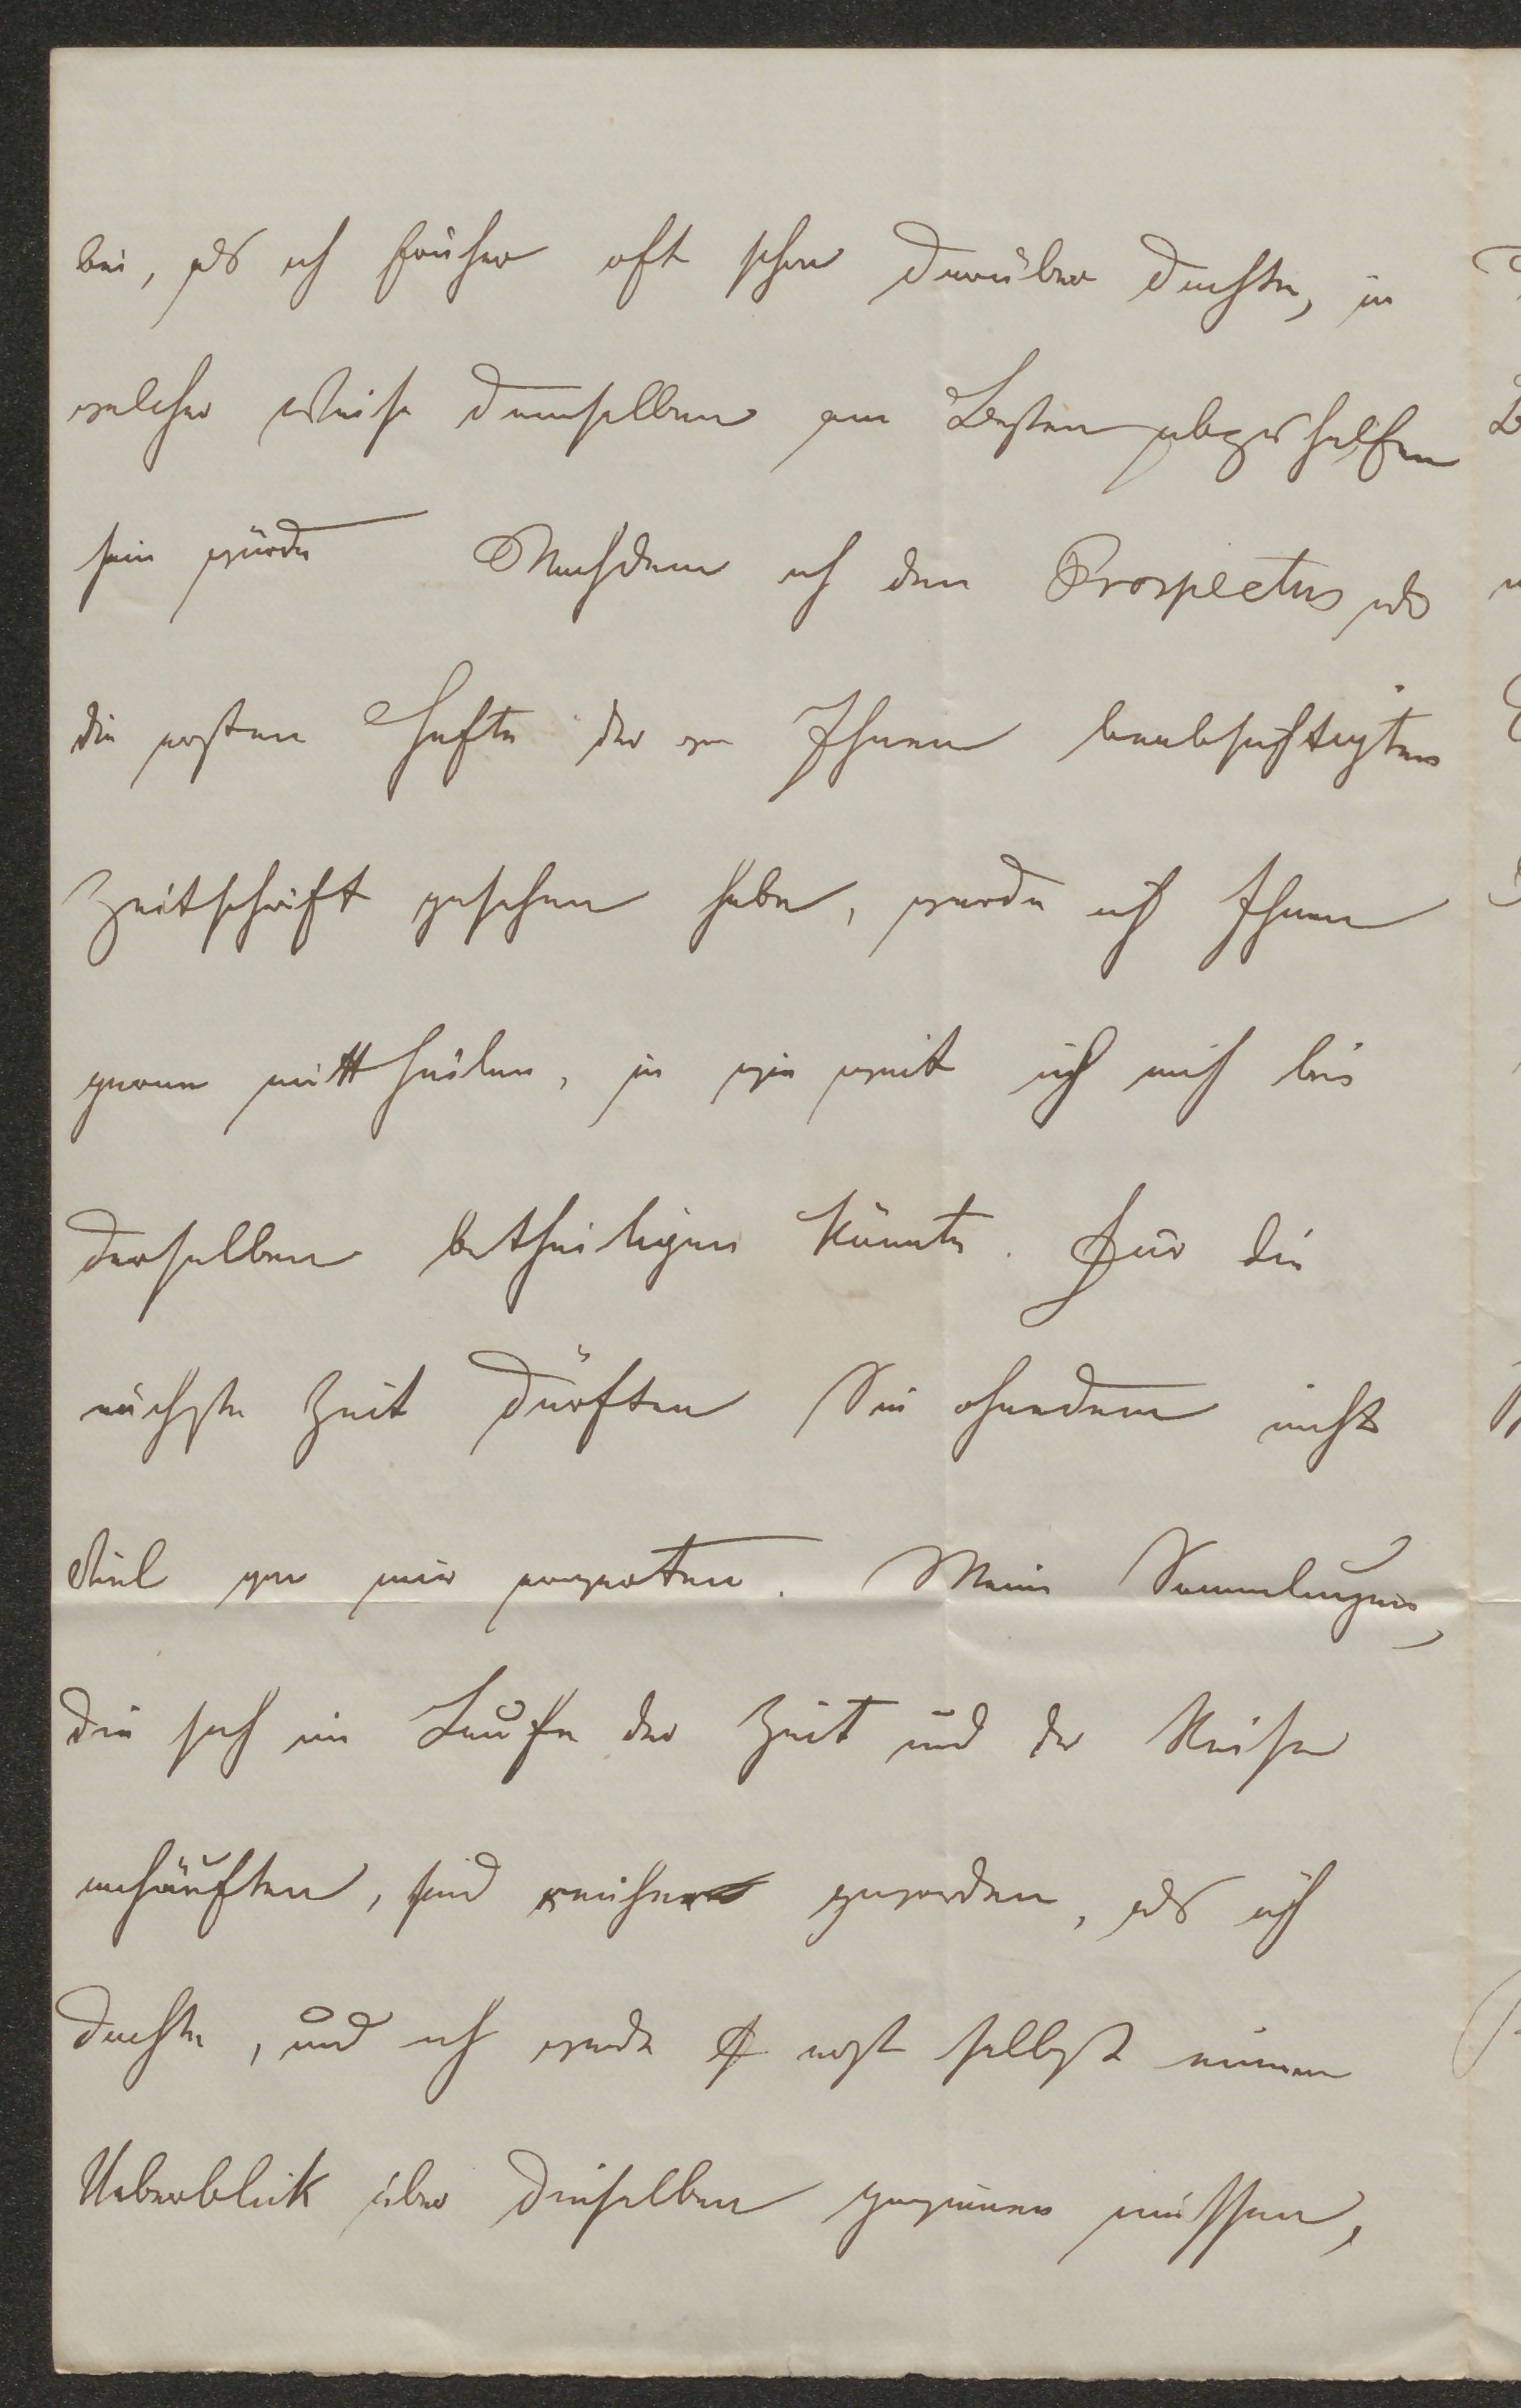 bei, als ich früher oft schon darüber dachte, in
welcher Weise demselben am Besten abzuhelfen
sein würde Nachdem ich den Prospectus als
die ersten Hefte der von Ihnen beabsichtigten
Zeitschrift gesehen habe, werde ich Ihnen
gerne mittheilen, in wie weit ich mich bei
derselben betheiligen könnte. Für die
nächste Zeit dürften Sie ohnedem nicht
Viel von mir erwarten. Meine Sammlungen,
die sich im Laufe der Zeit und der Reisen
anhäuften, sind reicher geworden, als ich
dachte, und ich werde erst selbst einen
Ueberblick über dieselben gewinnen müssen,